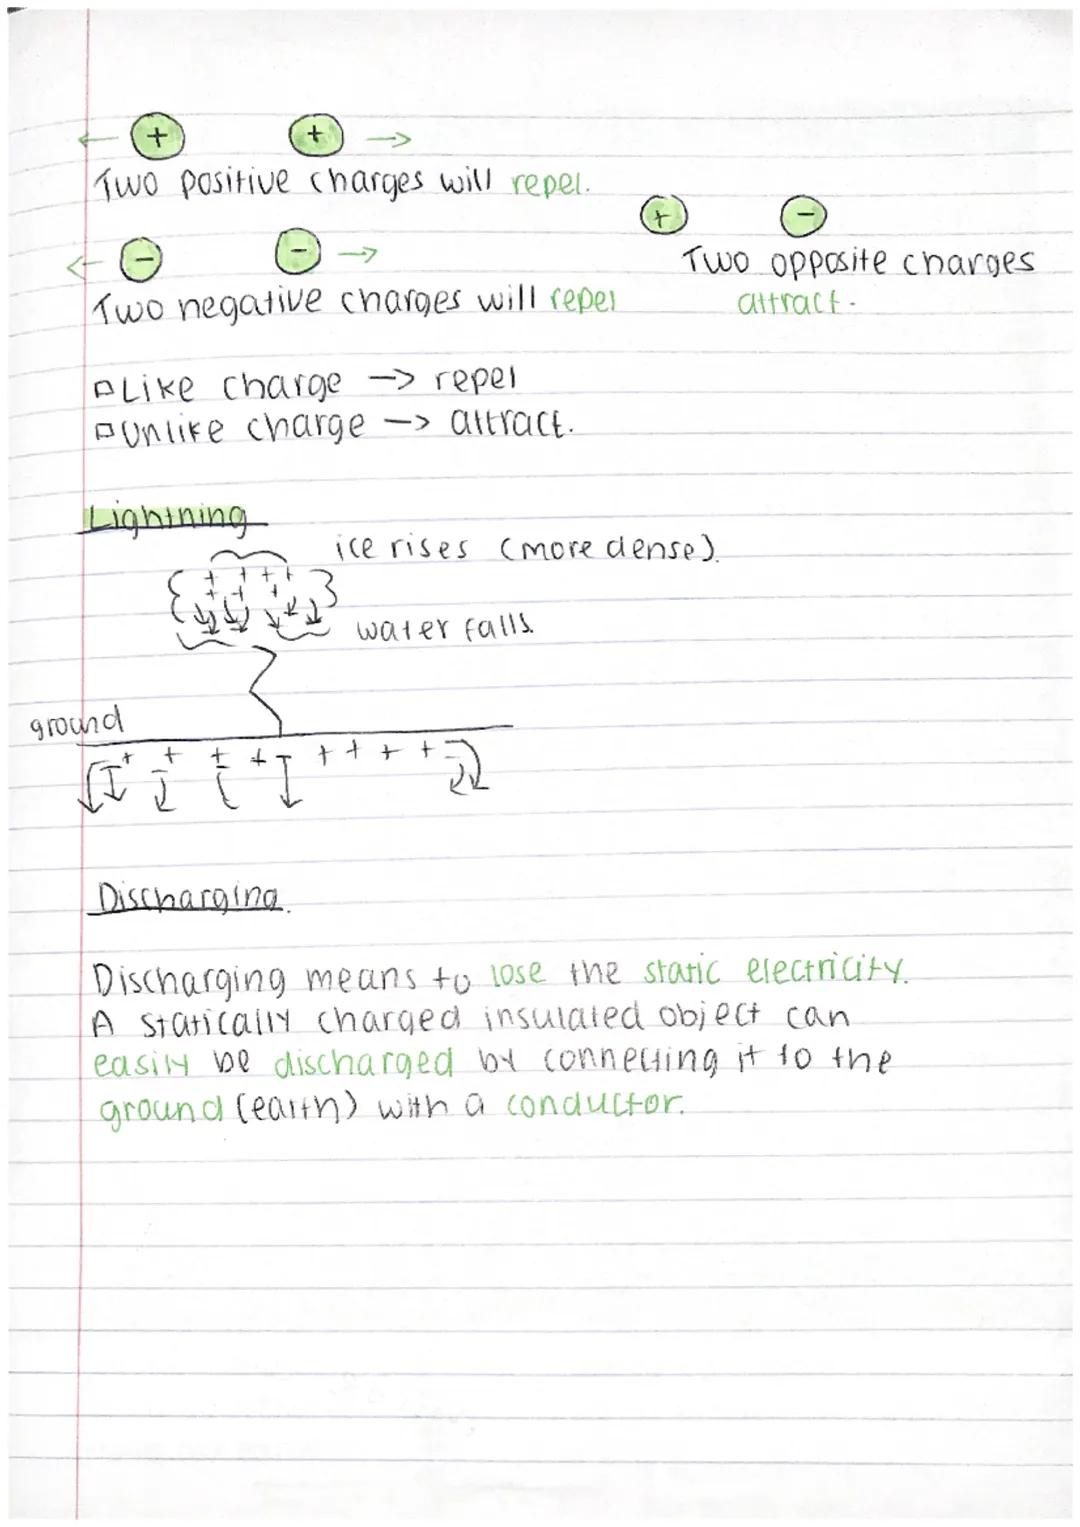 + +
Two positive charges will repel.
+ -
- -
Two opposite charges
attract.
Two negative charges will repel
Like charge -> repel
Unlike charge -> attract.
Lightning
ice rises (more dense).
+ + + +
+ + +
water falls.
ground
+ + + + + + + +
Discharging.
Discharging means to lose the static electricity.
A statically charged insulated object can
easily be discharged by connecting it to the
ground (earth) with a conductor.